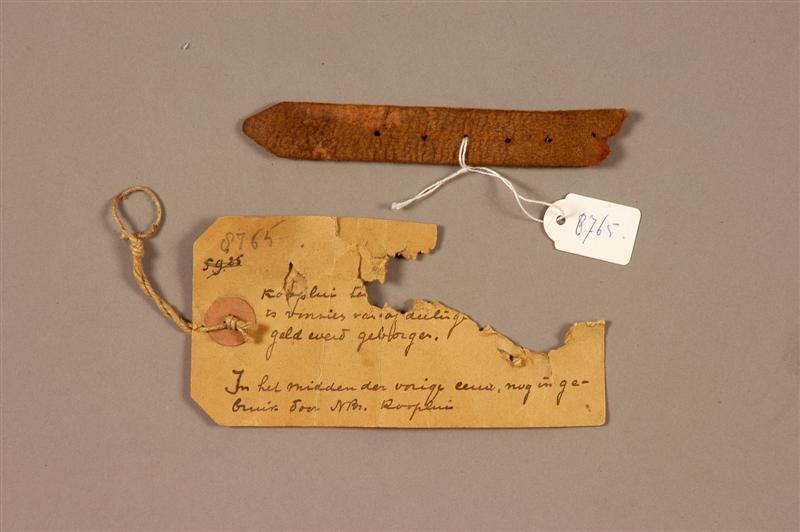 8765
59.25
Kooplui te
is voorzien van afdeelinge
geld werd geborgen.
In het midden der vorige eeuw, nog in ge-
bruik door NBr. Kooplui
8765.